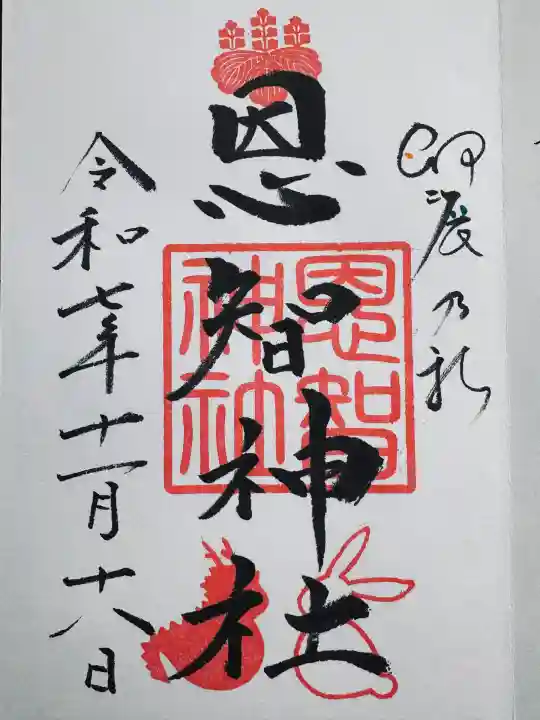 卯辰乃社
恩智神社
恩智神社
令和七年十一月十八日